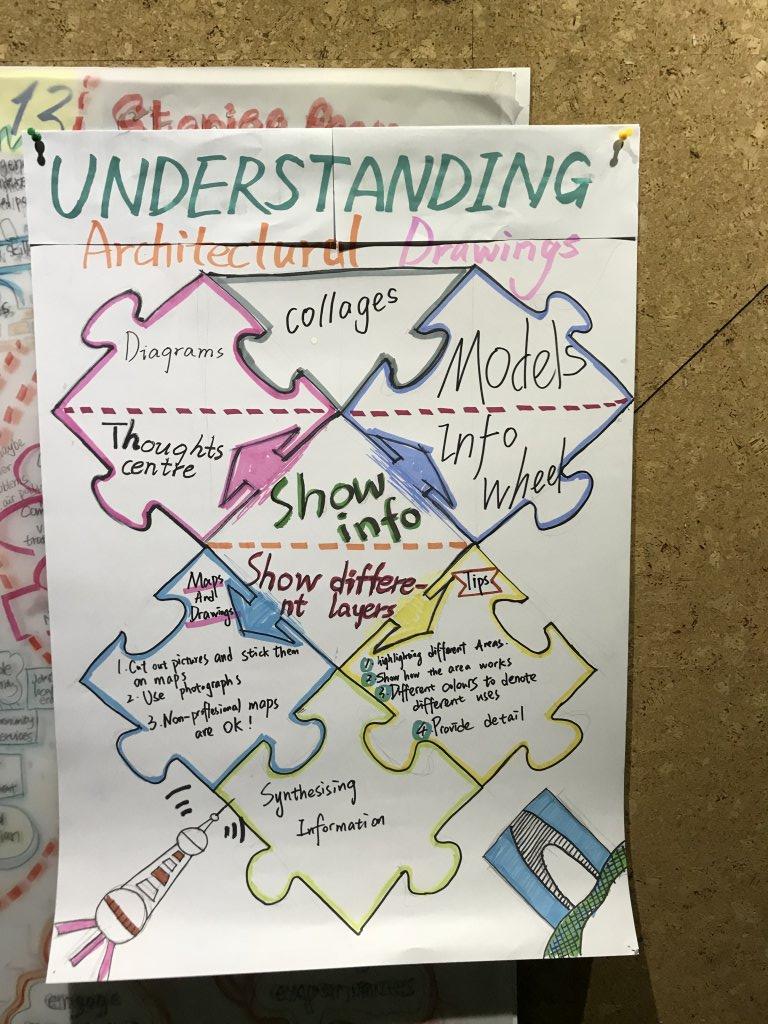 13
Stories from
UNDERSTANDING
Architectural Drawings
Collages
Diagrams
Models
Thoughts
centre
Info
wheel
Show
info
Show differe-
nt layers
Maps
And
Drawings
1. Cut out pictures and stick them
on maps
2. Use photographs
3. Non-proffesional maps
are OK!
Tips
1. highlighting different Areas.
2. Show how the area works
3. Different colours to denote
different uses
4. Provide detail
Synthesising
Information
engage